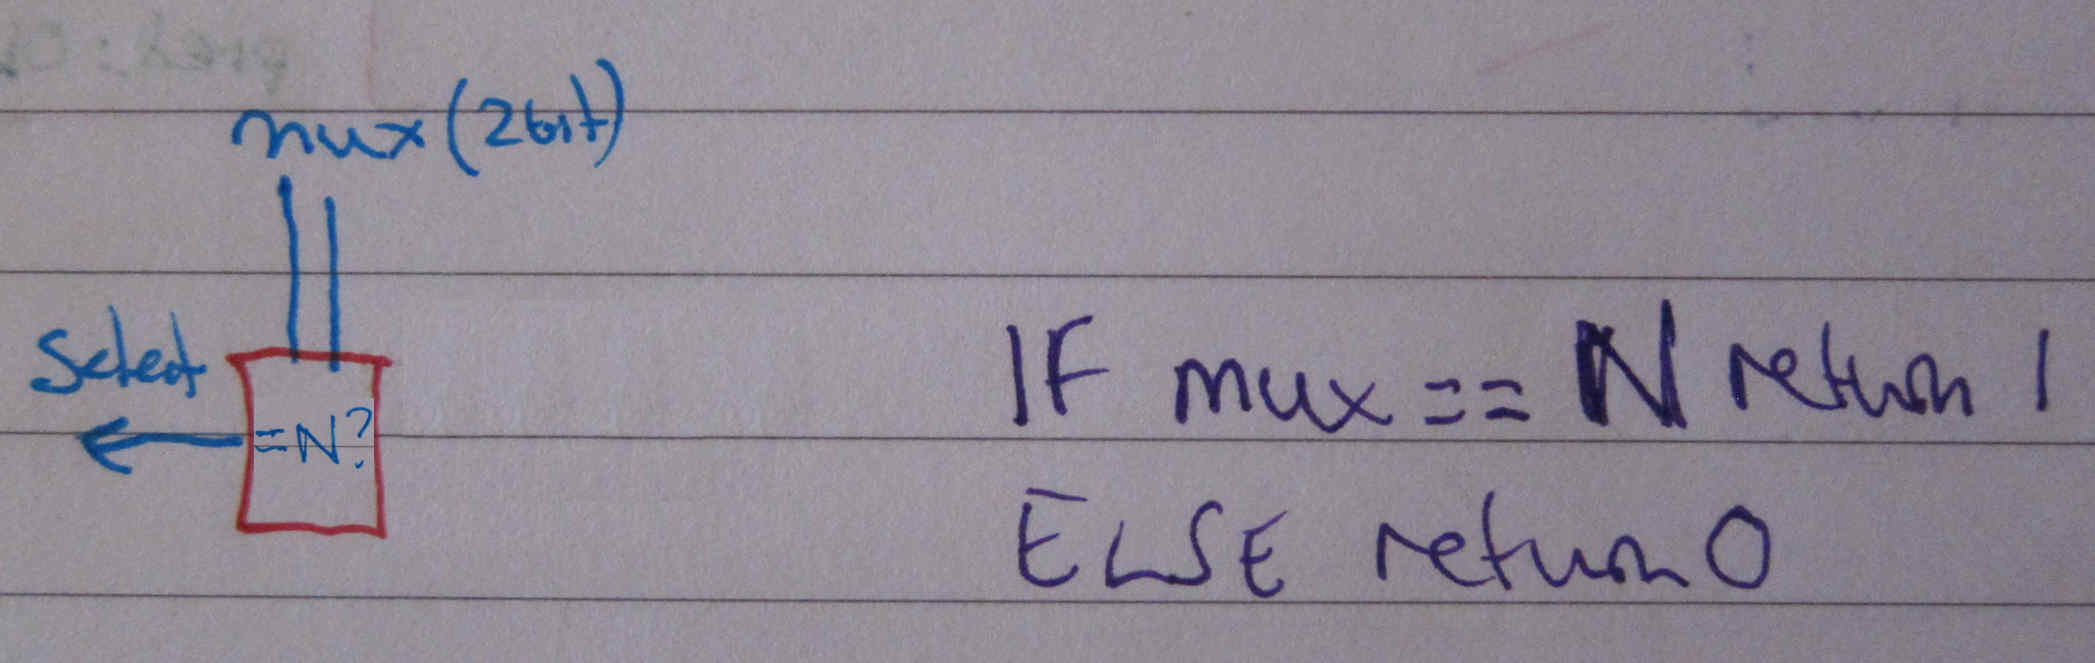 mux (2bit)
Select
=N?
IF mux == N return 1
ELSE return 0